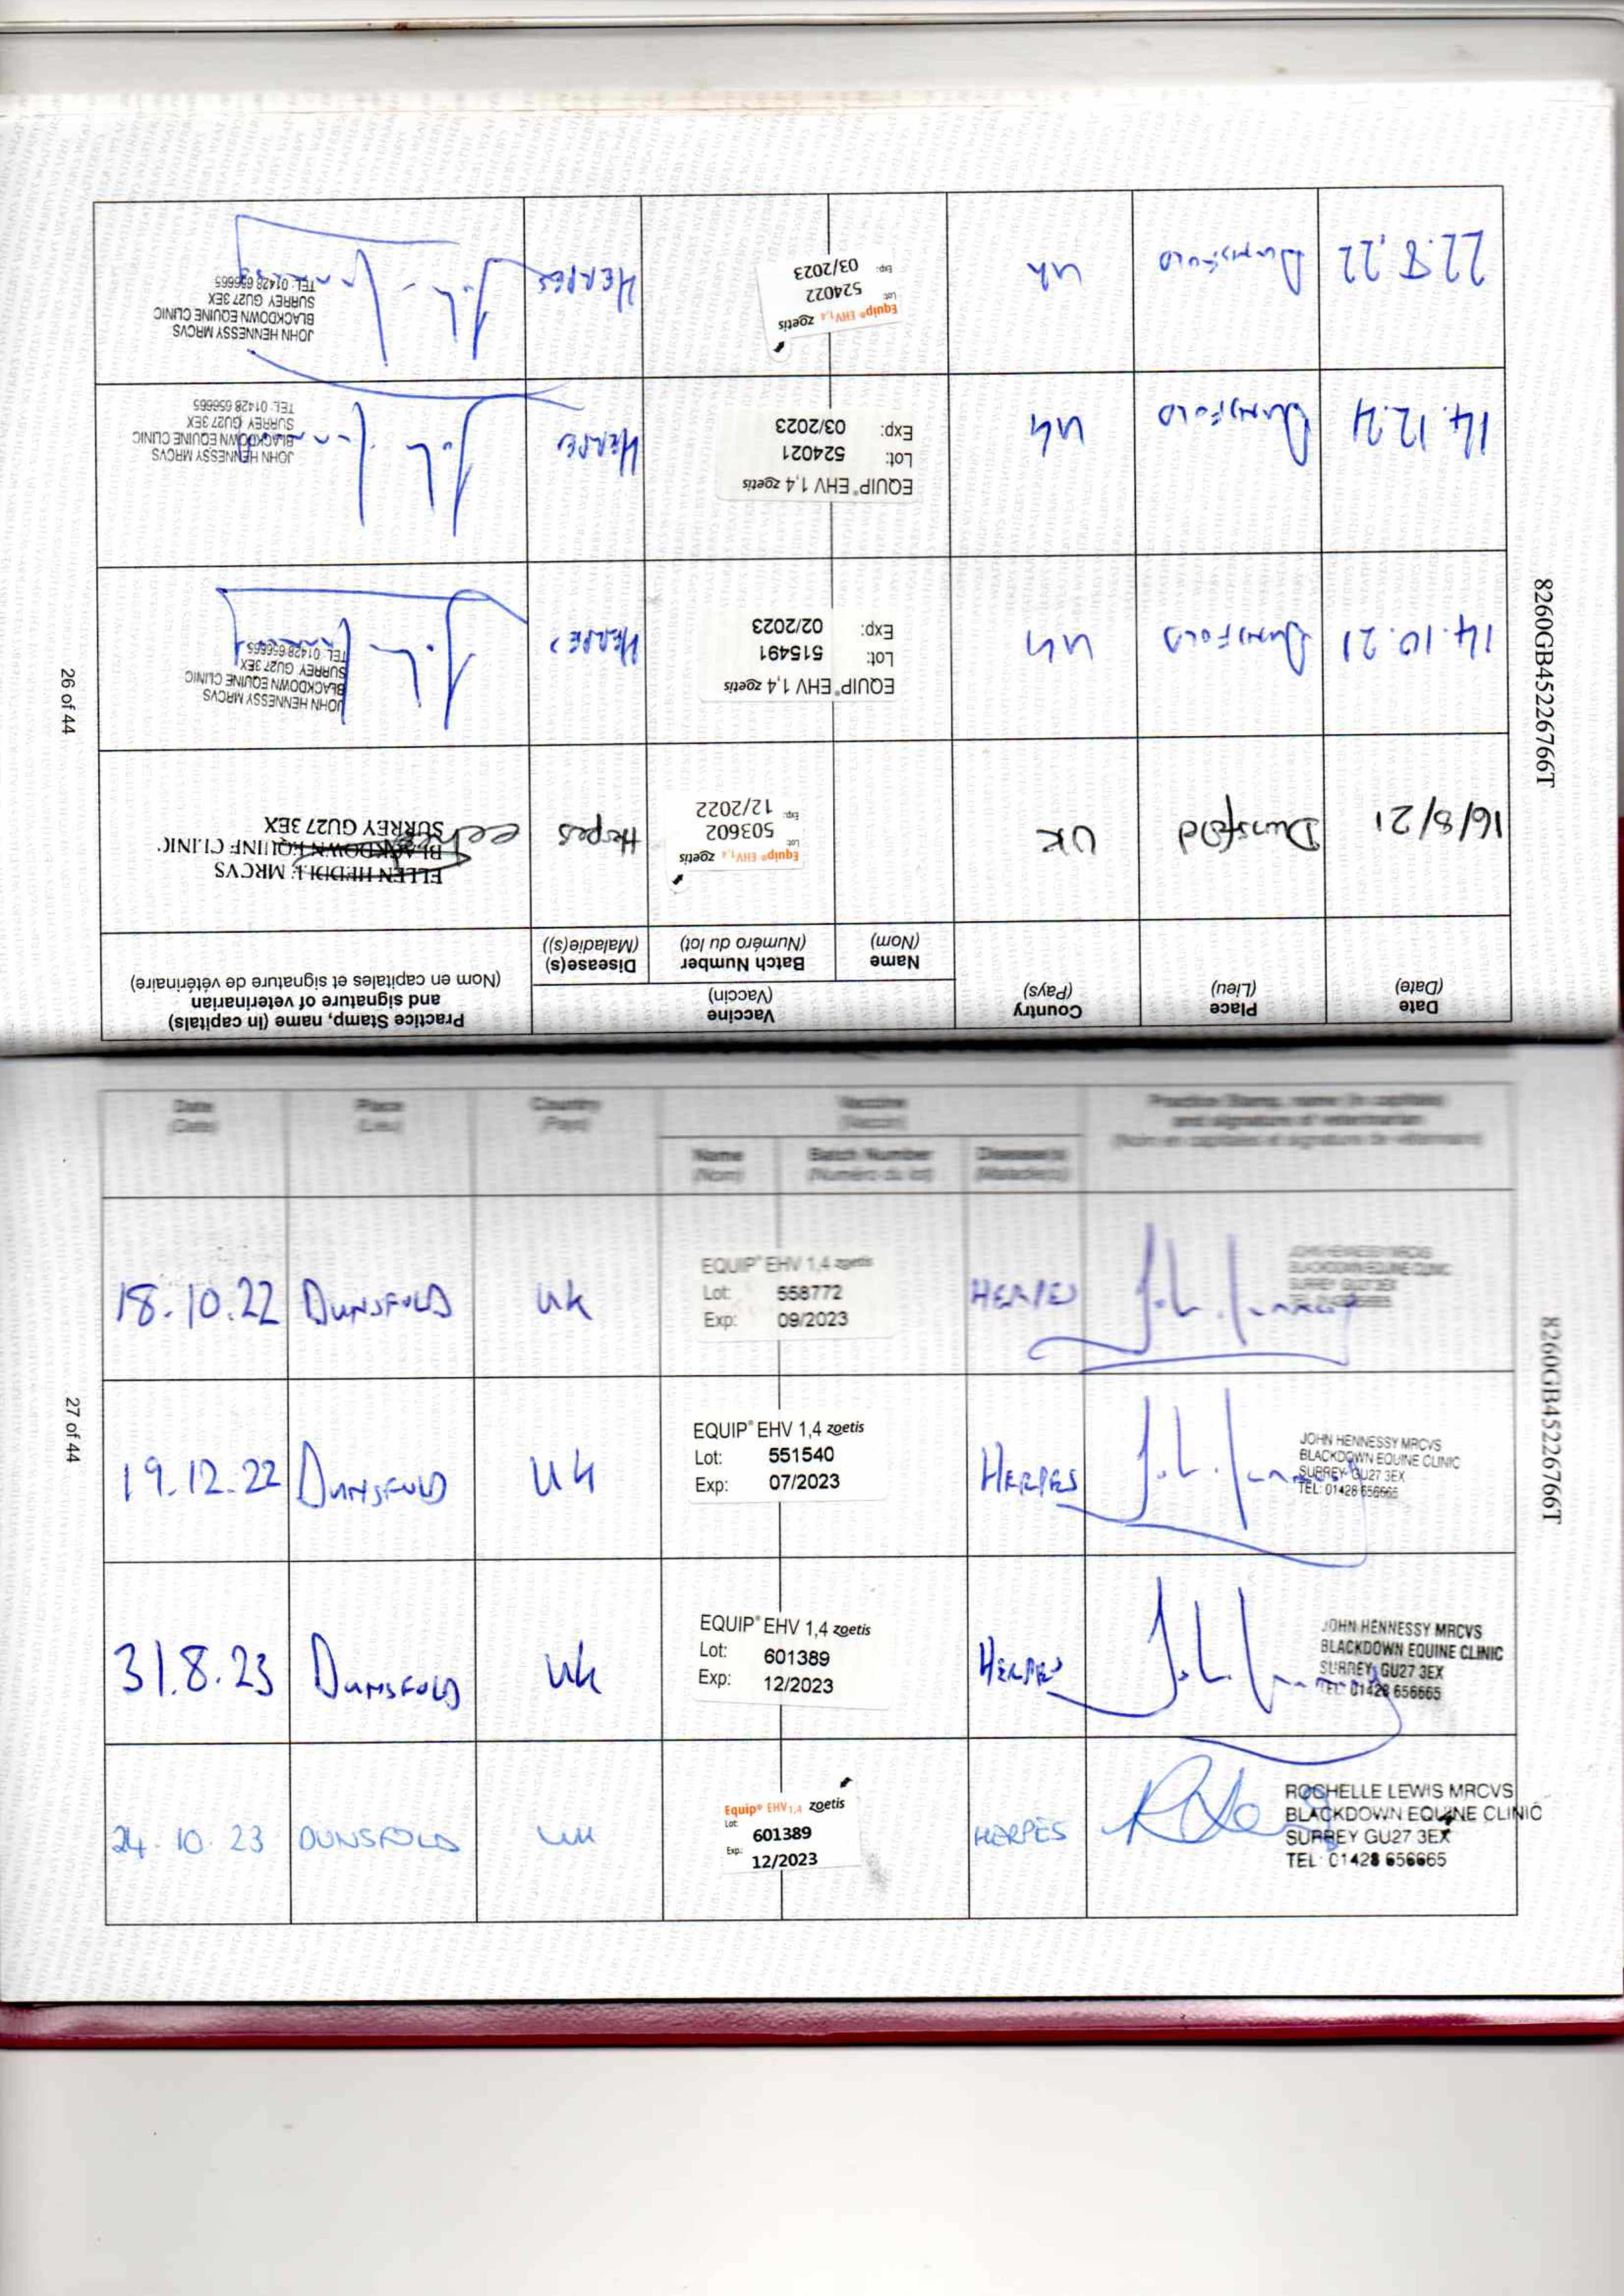 8260GB45226766T
26 of 44
Date
(Date)
Place
(Lieu)
Country
(Pays)
Vaccine
(Vaccin)
Name
(Nom)
Batch Number
(Numéro du lot)
Disease(s)
(Maladie(s))
Practice Stamp, name (in capitals)
and signature of veterinarian
(Nom en capitales et signature de vétérinaire)
16/8/21
Dunsfold
UK
Equip® EHV1,4 zoetis
Lot: 503602
Exp: 12/2022
Herpes
ELLEN HEDDLE MRCVS
BLACKDOWN EQUINE CLINIC
SURREY GU27 3EX
14.10.21
DUNSFOLD
UK
EQUIP® EHV 1,4 zoetis
Lot: 515491
Exp: 02/2023
HERPES
JOHN HENNESSY MRCVS
BLACKDOWN EQUINE CLINIC
SURREY GU27 3EX
TEL: 01428 656665
14.12.21
DUNSFOLD
UK
EQUIP® EHV 1,4 zoetis
Lot: 524021
Exp: 03/2023
HERPES
JOHN HENNESSY MRCVS
BLACKDOWN EQUINE CLINIC
SURREY GU27 3EX
TEL: 01428 656665
22.8.22
DUNSFOLD
UK
Equip® EHV1,4 zoetis
Lot: 524022
Exp: 03/2023
HERPES
JOHN HENNESSY MRCVS
BLACKDOWN EQUINE CLINIC
SURREY GU27 3EX
TEL: 01428 656665
8260GB45226766T
27 of 44
Date
(Date)
Place
(Lieu)
Country
(Pays)
Vaccine
(Vaccin)
Name
(Nom)
Batch Number
(Numéro du lot)
Disease(s)
(Maladie(s))
Practice Stamp, name (in capitals)
and signature of veterinarian
(Nom en capitales et signature de vétérinaire)
18.10.22
DUNSFOLD
UK
EQUIP® EHV 1,4 zoetis
Lot: 558772
Exp: 09/2023
HERPES
JOHN HENNESSY MRCVS
BLACKDOWN EQUINE CLINIC
SURREY GU27 3EX
TEL: 01428 656665
19.12.22
DUNSFOLD
UK
EQUIP® EHV 1,4 zoetis
Lot: 551540
Exp: 07/2023
HERPES
JOHN HENNESSY MRCVS
BLACKDOWN EQUINE CLINIC
SURREY GU27 3EX
TEL: 01428 656665
31.8.23
DUNSFOLD
UK
EQUIP® EHV 1,4 zoetis
Lot: 601389
Exp: 12/2023
HERPES
JOHN HENNESSY MRCVS
BLACKDOWN EQUINE CLINIC
SURREY GU27 3EX
TEL: 01428 656665
24.10.23
DUNSFOLD
UK
Equip® EHV1,4 zoetis
Lot: 601389
Exp: 12/2023
HERPES
ROCHELLE LEWIS MRCVS
BLACKDOWN EQUINE CLINIC
SURREY GU27 3EX
TEL: 01428 656665